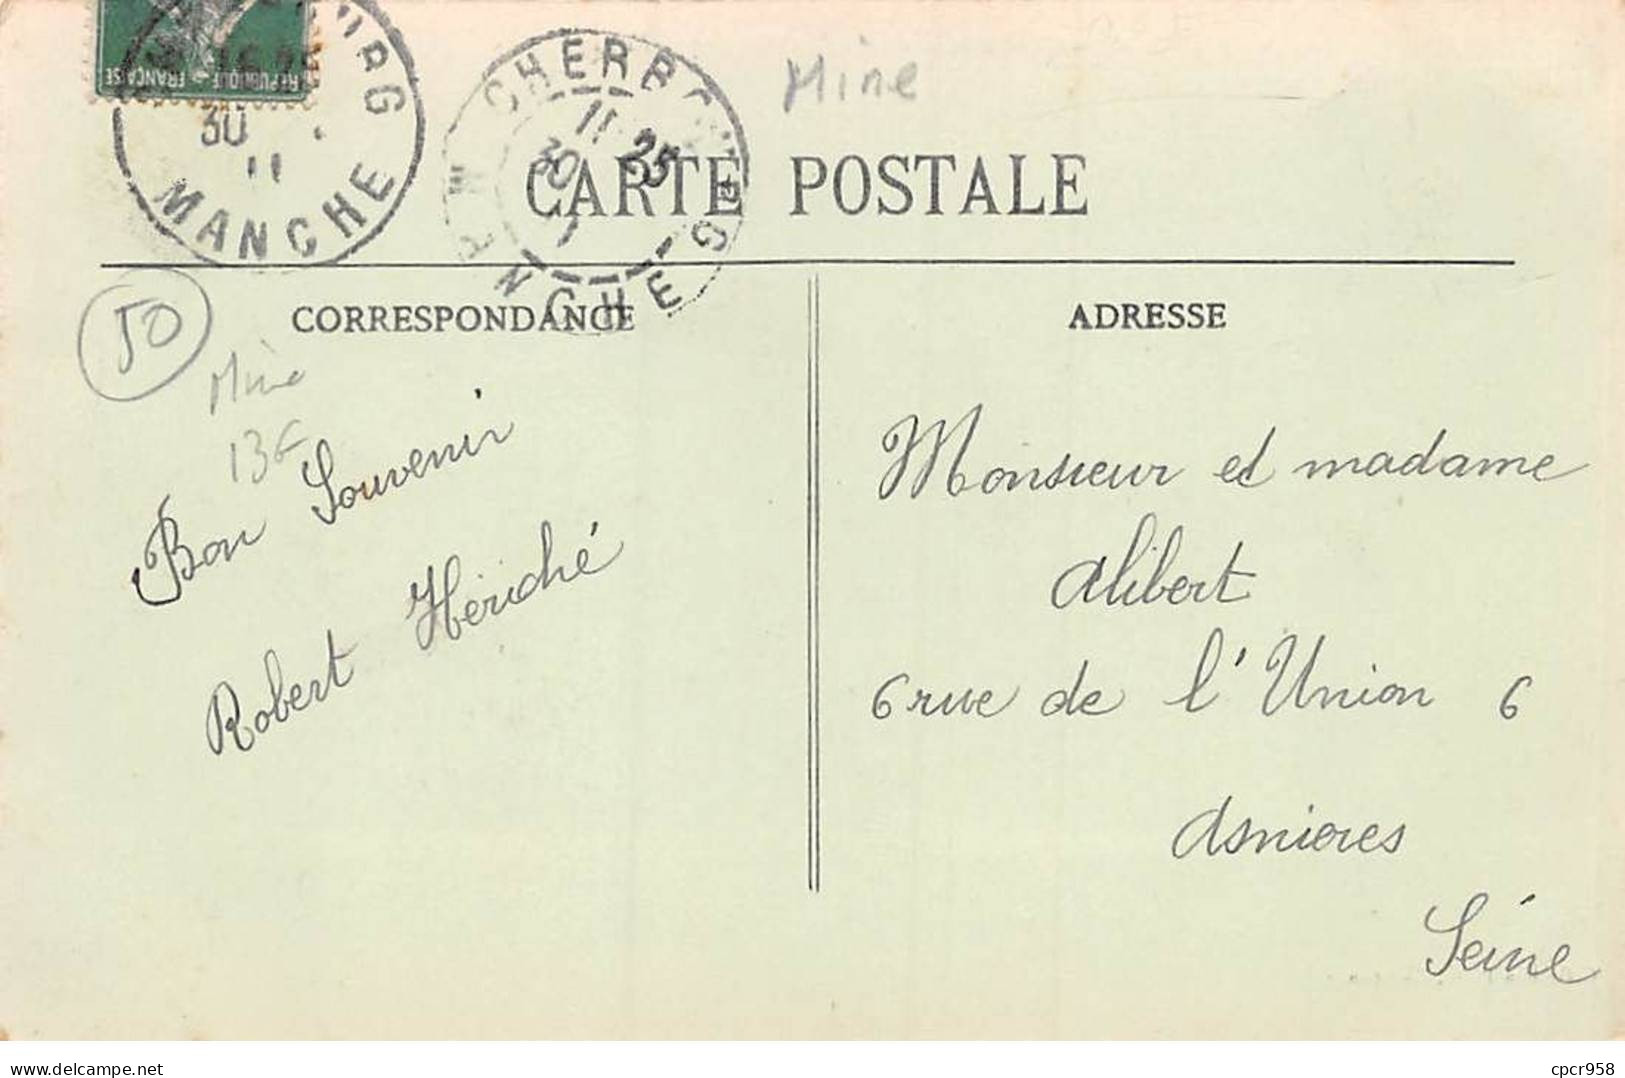 REPUBLIQUE FRANÇAISE
30
11
MANCHE
CHERBOURG
11 25
30
7
MANCHE
Mine
CARTE POSTALE
CORRESPONDANCE
ADRESSE
50
Mine
13€
Bon Souvenir
Robert Hériché
Monsieur et madame
Alibert
6 rue de l'Union 6
Asnieres
Seine
www.delcampe.net
cpcr958